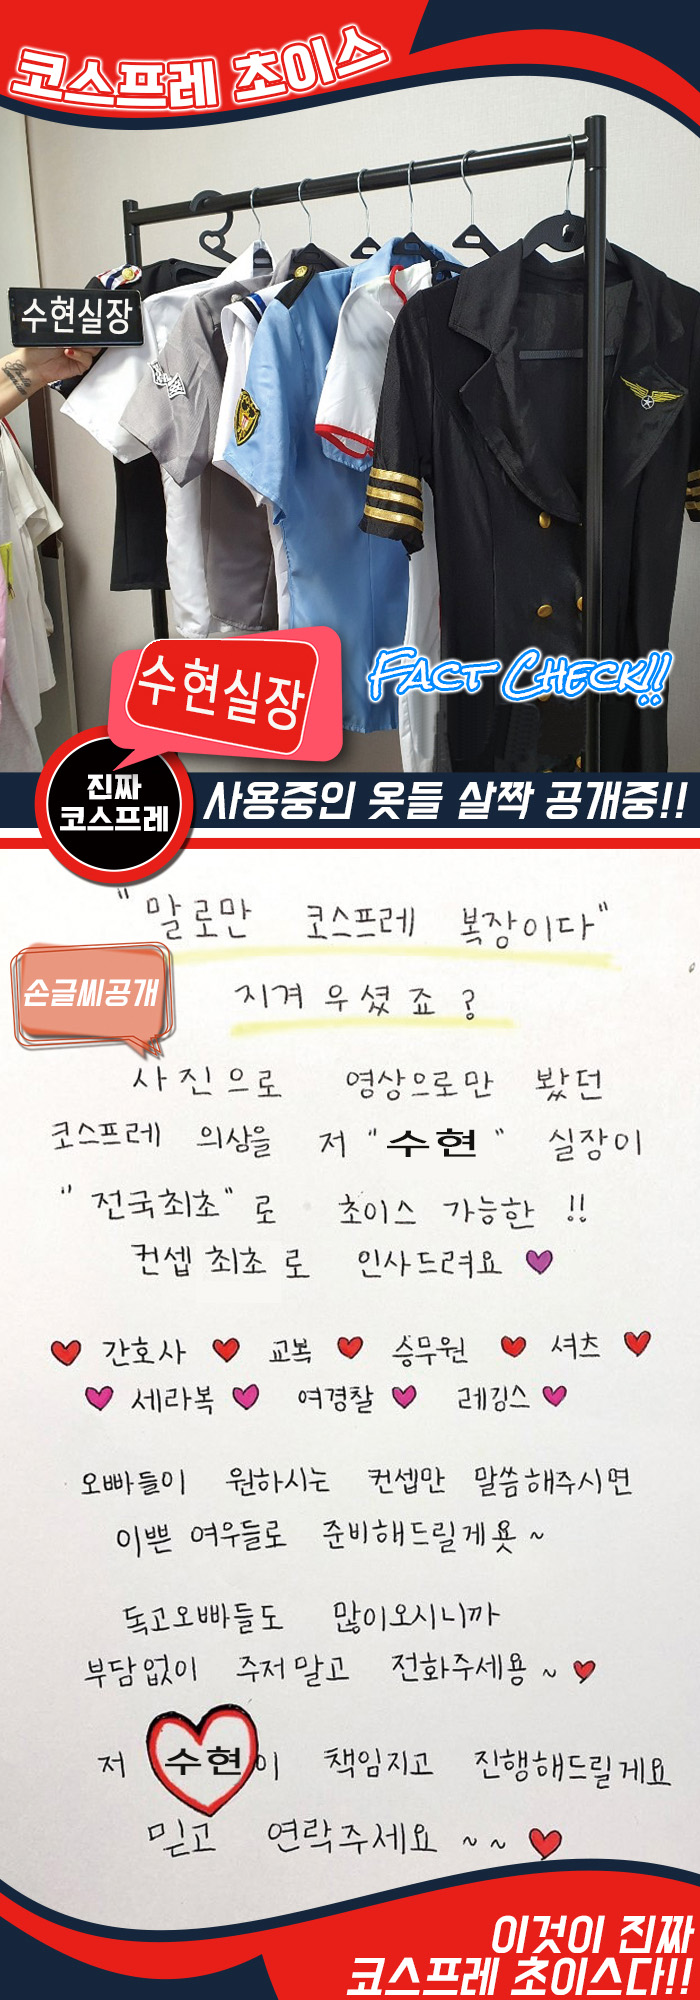 코스프레 초이스
수현실장
수현실장
FACT CHECK!!
진짜
코스프레
사용중인 옷들 살짝 공개중!!
"말로만 코스프레 복장이다"
손글씨공개
지겨우셨죠?
사진으로 영상으로만 봤던
코스프레 의상을 저 "수현" 실장이
"전국최초"로 초이스 가능한!!
컨셉 최초로 인사드려요 ♥
♥ 간호사 ♥ 교복 ♥ 승무원 ♥ 셔츠 ♥
♥ 세라복 ♥ 여경찰 ♥ 레깅스 ♥
오빠들이 원하시는 컨셉만 말씀해주시면
이쁜 여우들로 준비해드릴게욧~
독고오빠들도 많이오시니까
부담없이 주저말고 전화주세용~ ♥
저 수현이 책임지고 진행해드릴게요
믿고 연락주세요~~ ♥
이것이 진짜
코스프레 초이스다!!